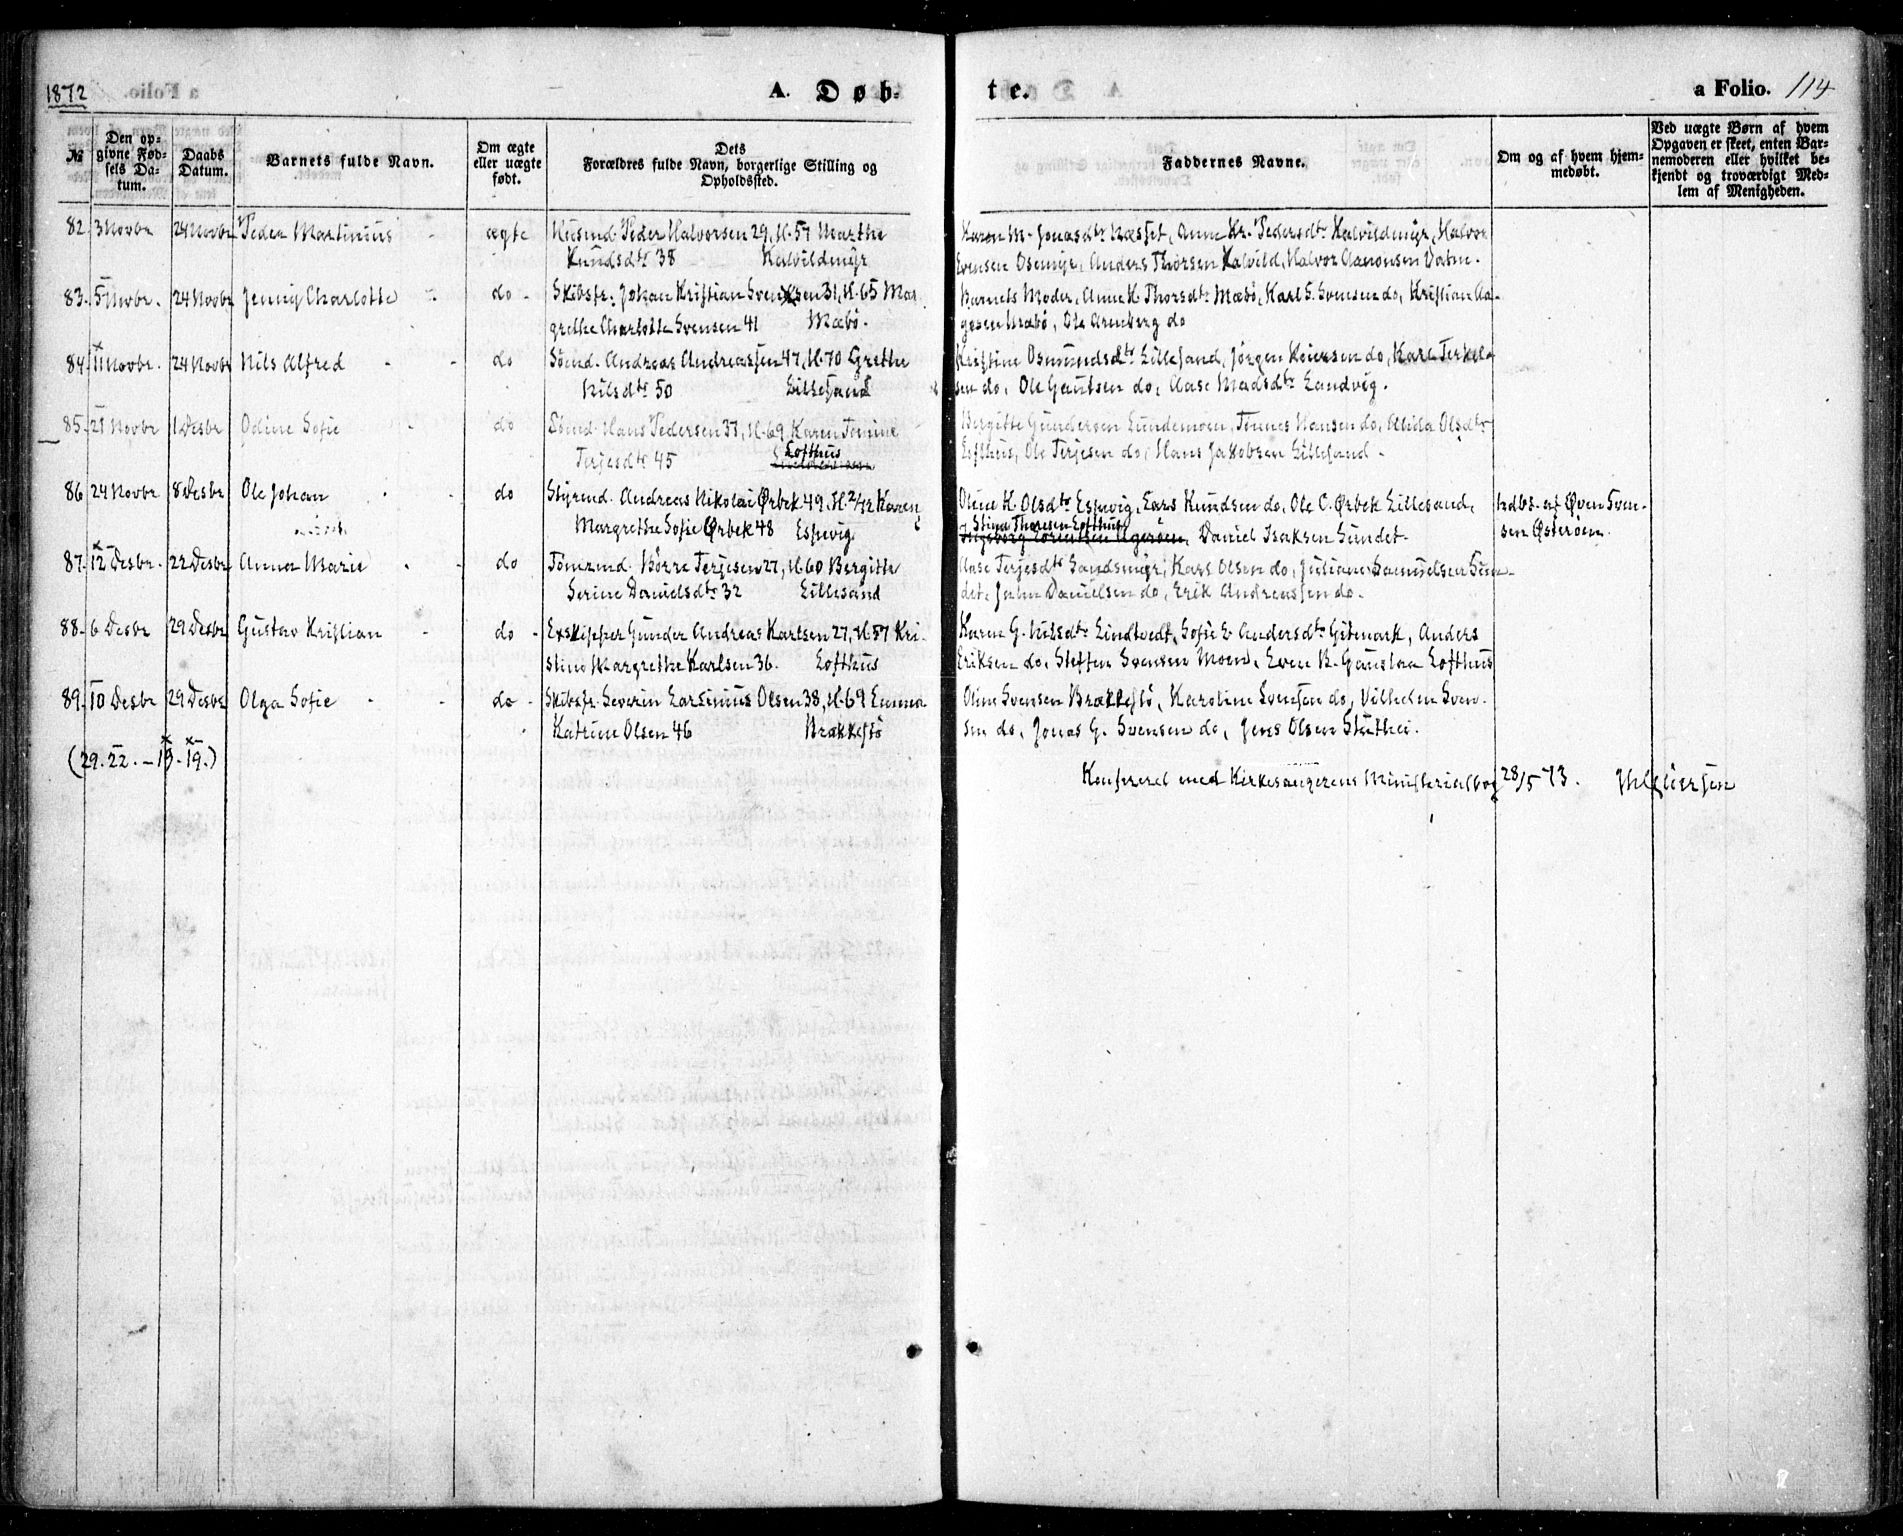 1872
A. Døb-
te.
a Folio. 114
№
Den opgivne Fødsels Datum.
Daabs Datum.
Barnets fulde Navn.
Om ægte eller uægte født.
Dets Forældres fulde Navn, borgerlige Stilling og Opholdssted.
Faddernes Navne.
Om og af hvem hjemmedøbt.
Ved uægte Børn af hvem Opgaven er skeet, enten Barnemoderen eller hvilket bekjendt og troværdigt Medlem af Menigheden.
82. 3 Novbr 24 Novbr Peder Martinius - ægte Husmd Peder Halvorsen 29, V. 57 Marthe
Knudsdtr 38 Kalvildmyr
Karen M. Jonasdtr Næsset, Anne Kr. Pedersdtr Kalvildmyr, Halvor
Evensen Osemyr, Anders Thorsen Kalvild, Halvor Aanonsen Vatne.
83. 5 Novbr. 24 Novbr Jenny Charlotte - do - Skibsfr. Johan Kristian Svensen 31, V. 65 Mar
grethe Charlotte Svensen 41 Mæbø.
Barnets Moder, Anne K. Thorsdtr Mæbø, Karl S. Svensen do, Kristian Aa-
gesen Mæbø, Ole Arenberg do
84. 11 Novbr. 24 Novbr Nils Alfred - - do Sømd. Andreas Andreassen 47, V. 70 Grethe
Nilsdtr 50 Lillesand
Kristine Osmundsdtr Lillesand, Jørgen Reiersen do, Karl Terkel
sen do, Ole Gautsen do, Aase Madsdtr Landvig.
85. 21 Novbr 1 Desbr Odine Sofie - do Sømd. Hans Pedersen 37, V. 69 Karen Tomine
Terjesdtr 45 Lofthus
Bergitte Gundersen Lundemoen, Tønnes Hansen do, Olsdtr
Lofthus, Ole Terjesen do, Hans Jakobsen Lillesand.
86 24 Novbr 8 Desbr Ole Johan - - do Styrmd. Andreas Nikolai Ørbek 49, V. 2/42 Karen
Margrethe Sofie Ørbek 48 Espevig
Oline K. Olsdtr Espevig, Lars Knudsen do, Ole C. Ørbek Lillesand,
Stina Thoresen Lofthus
Ingeborg Lorentsen Ågerøen, Daniel Isaksen Sundet.
hdbt. af Øven Sven-
sen Østerøen.
87. 12 Desbr. 22 Desbr Anna Marie - - do Tømmd. Børre Terjesen 27, V. 60 Bergitte
Serine Danielsdtr 32 Lillesand
Aase Terjesdtr Sandsmyr, Kars Olsen do, Juliane Samuelsen Sun-
det, John Danielsen do, Erik Andreassen do.
88. 6 Desbr 29 Desbr Gustav Kristian - do - Exskipper Gunder Andreas Karlsen 27, V. 57 Kri-
stine Margrethe Karlsen 36. Lofthus
Karen G. Nilsdtr Lindtvedt, Sofie E. Andersdtr Gitmark, Anders
Eriksen do, Steffen Svensen Moen, Even B. Gaustaa Lofthus
89. 10 Desbr 29 Desbr Olga Sofie - - do - Skibsfr. Severin Larsinius Olsen 38, V. 69 Emma
Katrine Olsen 46 Brækkestø
Oline Svensen Brækkestø, Karoline Svensen do, Vilhelm Sven-
sen do, Jonas G. Svensen do, Jens Olsen Stuthei.
(29. 22. - 13. 19.)
Konfereret med Kirkesangerens Ministerialbog 28/5 73.